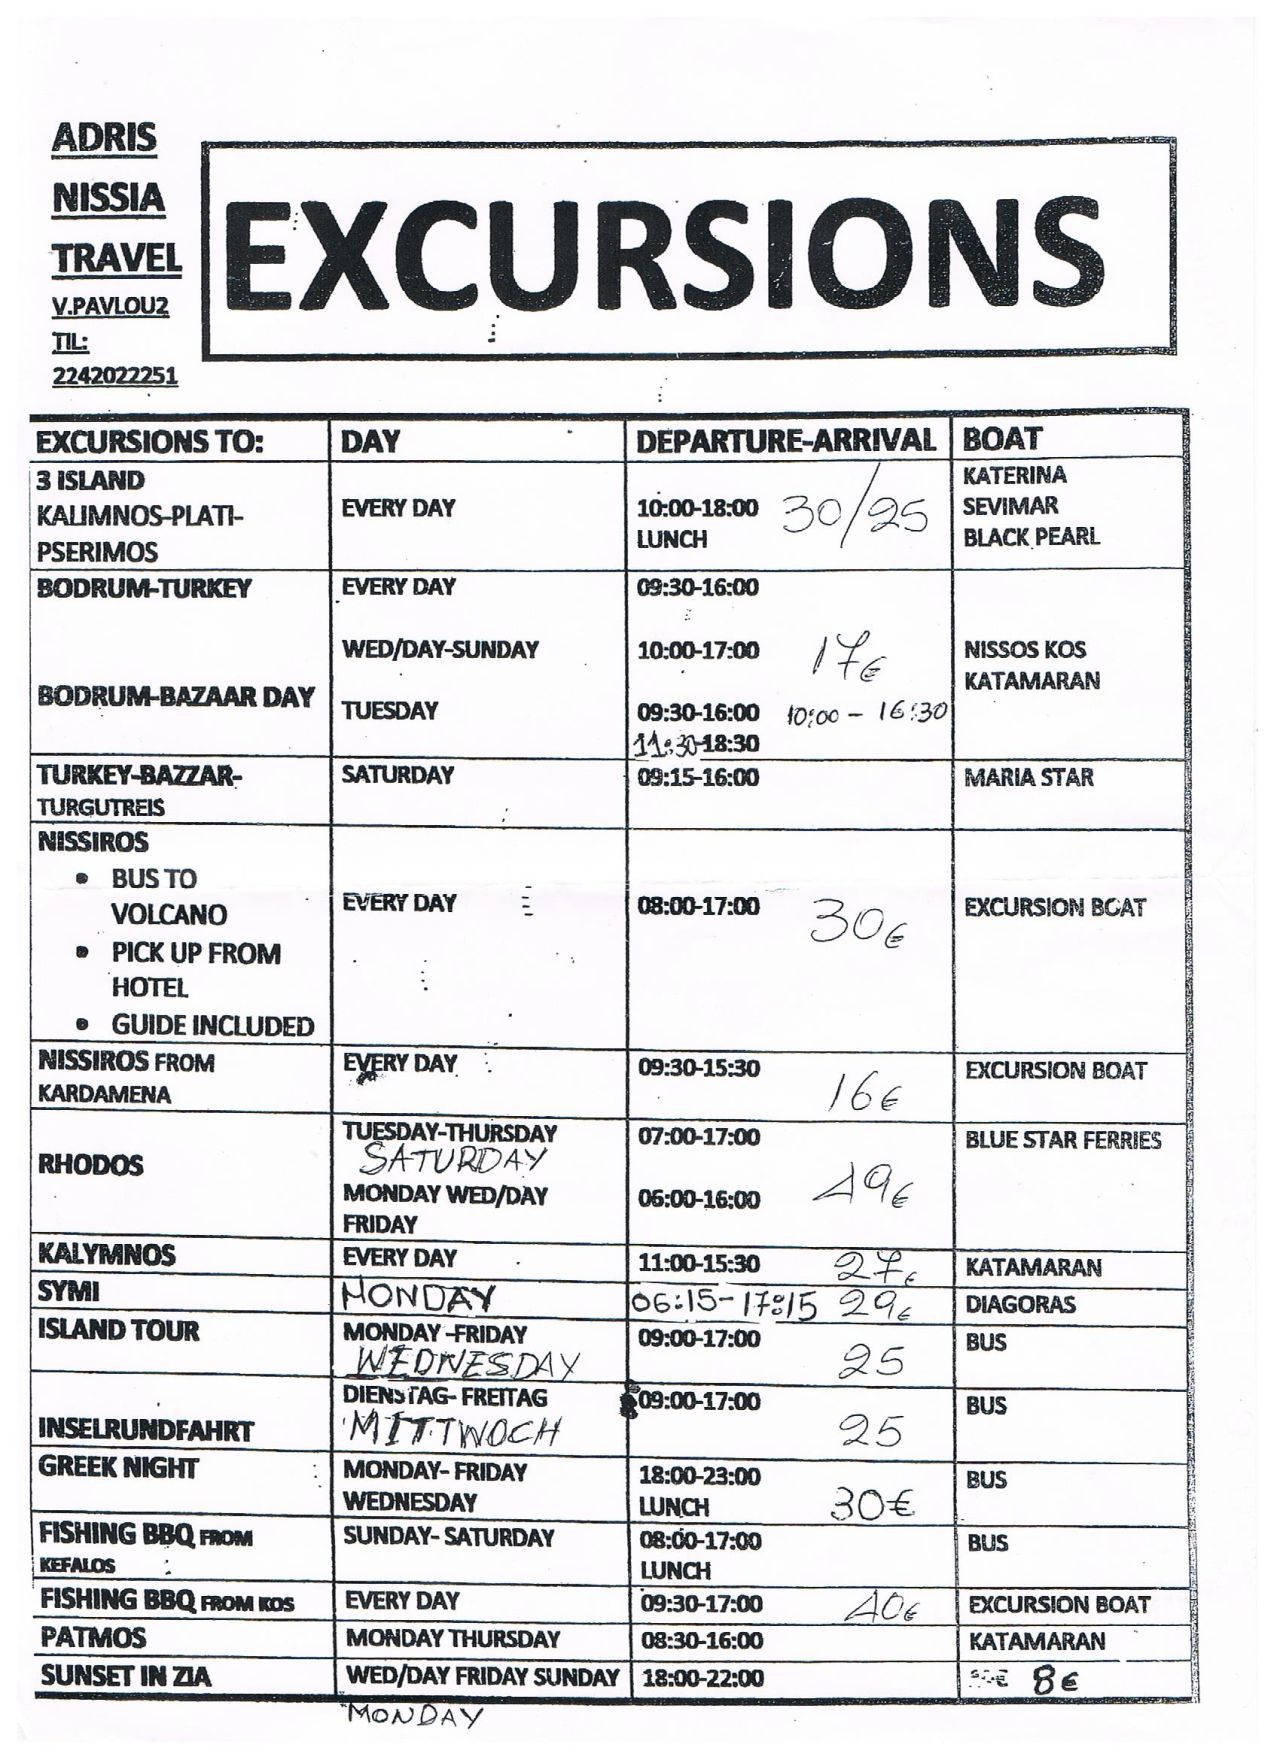 ADRIS
NISSIA
TRAVEL
V.PAVLOU2
TIL:
2242022251
EXCURSIONS
EXCURSIONS TO: DAY DEPARTURE-ARRIVAL BOAT
3 ISLAND
KALIMNOS-PLATI-
PSERIMOS
EVERY DAY
10:00-18:00 30/25
LUNCH
KATERINA
SEVIMAR
BLACK PEARL
BODRUM-TURKEY EVERY DAY 09:30-16:00
WED/DAY-SUNDAY 10:00-17:00 17€ NISSOS KOS
KATAMARAN
BODRUM-BAZAAR DAY TUESDAY 09:30-16:00 10:00 - 16:30
11:30-18:30
TURKEY-BAZZAR- SATURDAY 09:15-16:00 MARIA STAR
TURGUTREIS
NISSIROS
• BUS TO
VOLCANO
• PICK UP FROM
HOTEL
• GUIDE INCLUDED
EVERY DAY 08:00-17:00 30€ EXCURSION BOAT
NISSIROS FROM EVERY DAY 09:30-15:30 16€ EXCURSION BOAT
KARDAMENA
RHODOS
TUESDAY-THURSDAY 07:00-17:00 BLUE STAR FERRIES
SATURDAY
MONDAY WED/DAY 06:00-16:00 49€
FRIDAY
KALYMNOS EVERY DAY 11:00-15:30 27€ KATAMARAN
SYMI MONDAY 06:15-17:15 29€ DIAGORAS
ISLAND TOUR MONDAY-FRIDAY 09:00-17:00 BUS
WEDNESDAY 25
DIENSTAG- FREITAG 09:00-17:00 BUS
INSELRUNDFAHRT MITTWOCH 25
GREEK NIGHT MONDAY- FRIDAY 18:00-23:00 BUS
WEDNESDAY LUNCH 30€
FISHING BBQ FROM SUNDAY- SATURDAY 08:00-17:00 BUS
KEFALOS LUNCH
FISHING BBQ FROM KOS EVERY DAY 09:30-17:00 40€ EXCURSION BOAT
PATMOS MONDAY THURSDAY 08:30-16:00 KATAMARAN
SUNSET IN ZIA WED/DAY FRIDAY SUNDAY 18:00-22:00 8€
MONDAY